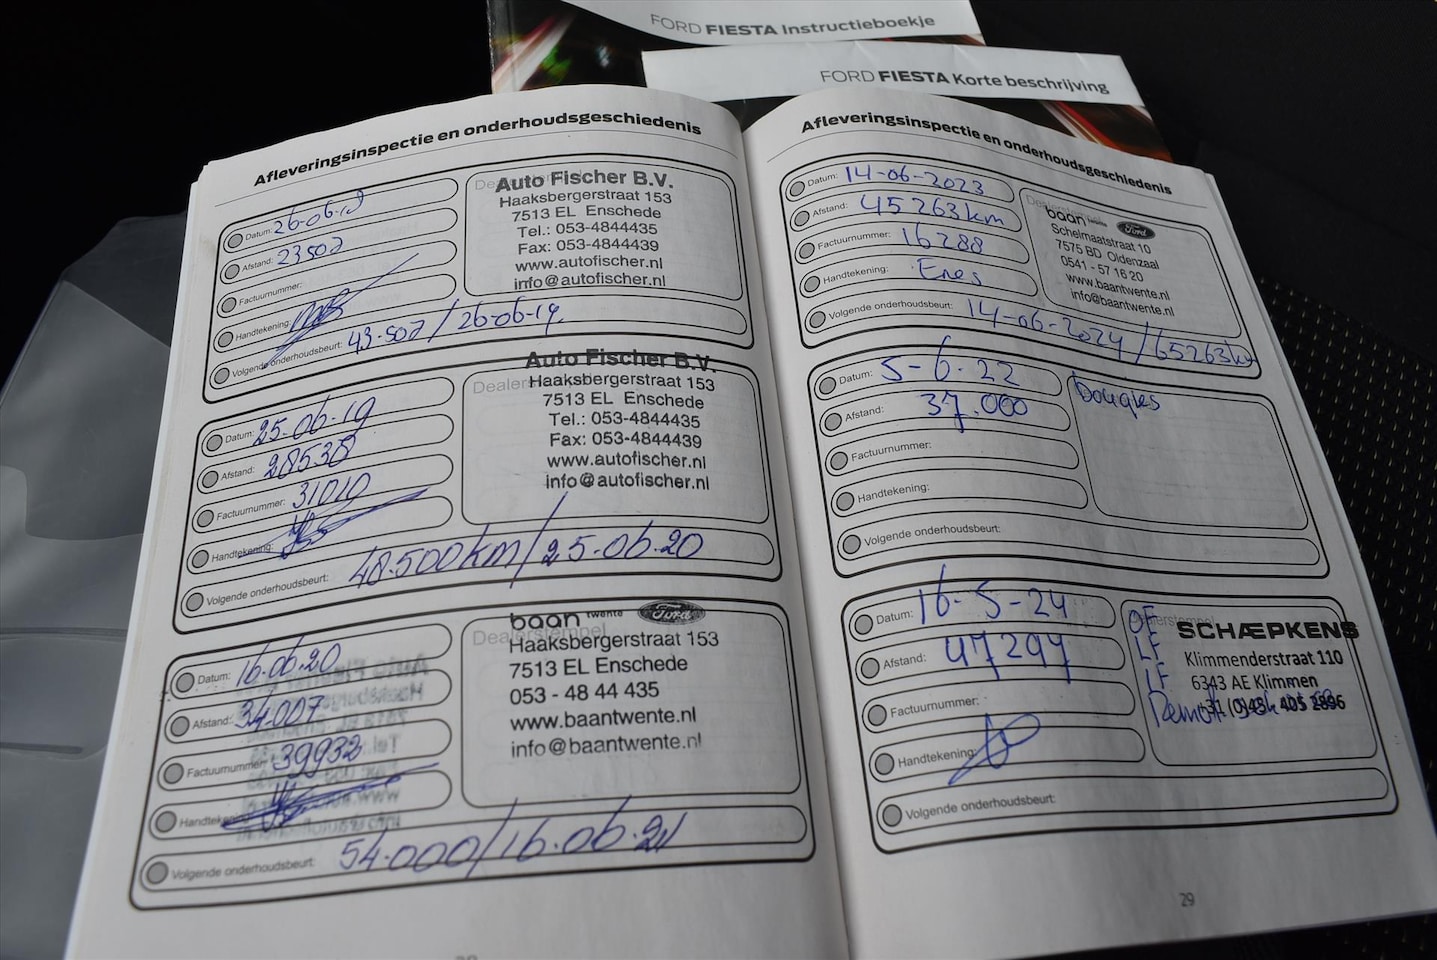 FORD FIESTA Instructieboekje
FORD FIESTA Korte beschrijving
Afleveringsinspectie en onderhoudsgeschiedenis
Datum: 26-06-18
Afstand: 23507
Factuurnummer:
Handtekening:
Volgende onderhoudsbeurt: 43.507 / 26-06-19
Auto Fischer B.V.
Haaksbergerstraat 153
7513 EL Enschede
Tel.: 053-4844435
Fax: 053-4844439
www.autofischer.nl
info@autofischer.nl
Datum: 25-06-19
Afstand: 28538
Factuurnummer: 31010
Handtekening:
Volgende onderhoudsbeurt: 48.500km/25-06-20
Auto Fischer B.V.
Haaksbergerstraat 153
7513 EL Enschede
Tel.: 053-4844435
Fax: 053-4844439
www.autofischer.nl
info@autofischer.nl
Datum: 16.06.20
Afstand: 34.007
Factuurnummer: 39932
Handtekening:
Volgende onderhoudsbeurt: 54.000/16.06.21
baan twente Ford
Dealerstempel
Haaksbergerstraat 153
7513 EL Enschede
053 - 48 44 435
www.baantwente.nl
info@baantwente.nl
Afleveringsinspectie en onderhoudsgeschiedenis
Datum: 14-06-2023
Afstand: 45263km
Factuurnummer: 16288
Handtekening: Enes
Volgende onderhoudsbeurt: 14-06-2024/65263km
baan twente Ford
Schelmaatstraat 10
7575 BD Oldenzaal
0541 - 57 16 20
www.baantwente.nl
info@baantwente.nl
Datum: 5-6-22
Afstand: 37.000
Factuurnummer:
Handtekening:
Volgende onderhoudsbeurt:
Douglas
Datum: 16-5-24
Afstand: 47294
Factuurnummer:
Handtekening:
Volgende onderhoudsbeurt:
OF
LF
IF
SCHÆPKENS
Klimmenderstraat 110
6343 AE Klimmen
+31 (0)45 - 405 2896
29